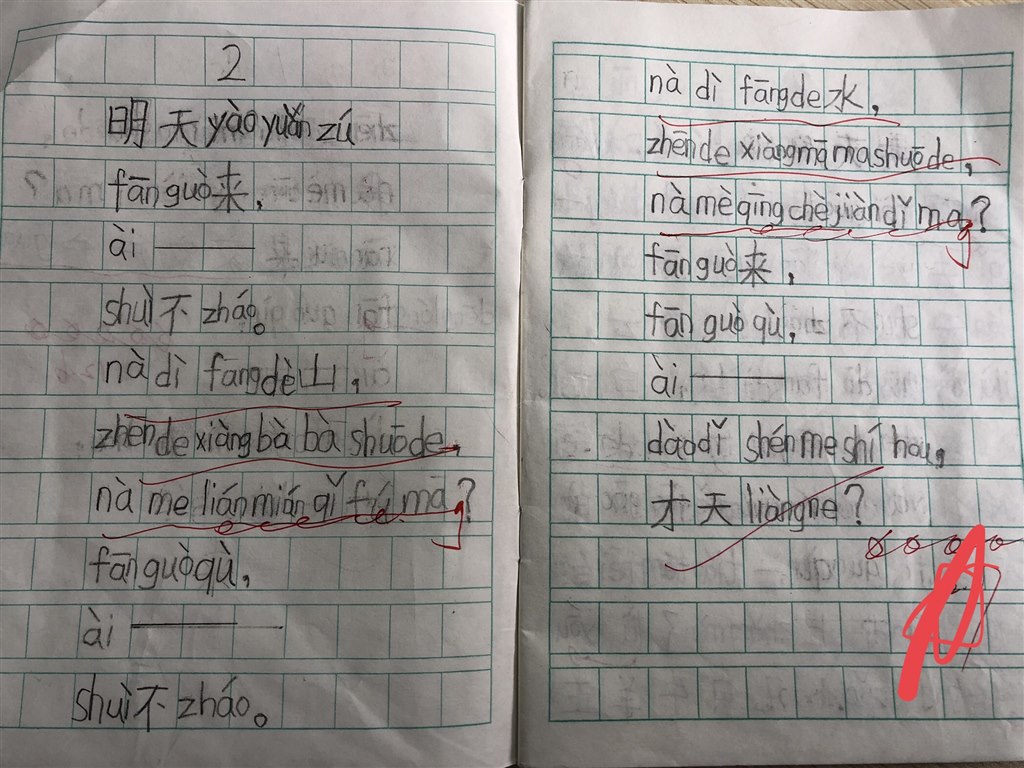 2
明天yàoyuǎnzú
fānguò来，
ài ——
shuì不zháo。
nà dì fangdè山，
zhēndexiàngbàbàshuōde，
nà me liánmiánqǐ fú ma？
fānguòqù，
ài ——
shuì不zháo。
nà dì fāngde水，
zhēndexiàngmāmashuōde，
nà mèqīngchèjiàndǐ ma？
fānguò来，
fān guò qù，
ài ——
dàodǐ shénmeshí hou，
才天liàngne？